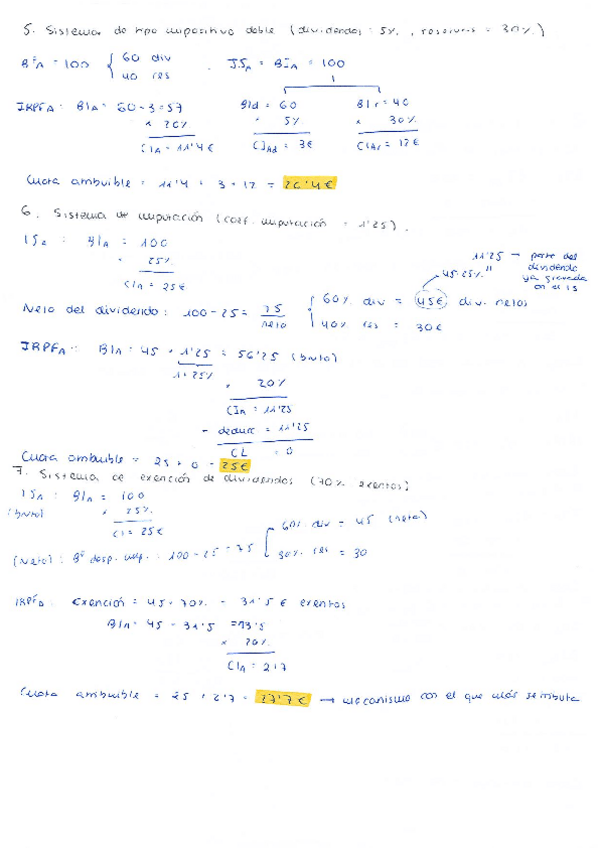 5. Sistema de tipo impositivo doble (dividendos: 5%, reservas = 30%)
BºA = 100 { 60 div
40 res
I.SA = BIA = 100
IRPFA: BIA: 60-3=57
x 20%
CIA = 11'4€
BId = 60
x 5%
CIAd = 3€
BIr = 40
x 30%
CIAr = 12€
Cuota atribuible = 11'4 + 3 + 12 = 26'4€
6. Sistema de imputación (coef. imputación = 1'25).
ISA : BIA = 100
x 25%
CIA = 25€
Neto del dividendo: 100-25= 75 neto
{ 60% div = 45€ div. netos
40% res = 30€
45·25% "
11'25 → parte del dividendo ya gravada en el IS
IRPFA: BIA = 45 x 1'25 = 56'25 (bruto)
1+25%
x 20%
CIA = 11'25
- deducc = 11'25
CL = 0
Cuota atribuible = 25 + 0 = 25€
7. Sistema de exención de dividendos (70% exentos)
ISA : BIA = 100
(bruto) x 25%
CI = 25€
(Neto): Bº desp. imp.: 100-25=75
60% div = 45 (neto)
30% res = 30
IRPFA: Exención = 45·70% = 31'5€ exentos
BIA: 45 - 31'5 =13'5
x 20%
CIA = 2'7
Cuota atribuible = 25 + 2'7 = 27'7€ → mecanismo con el que más se tributa